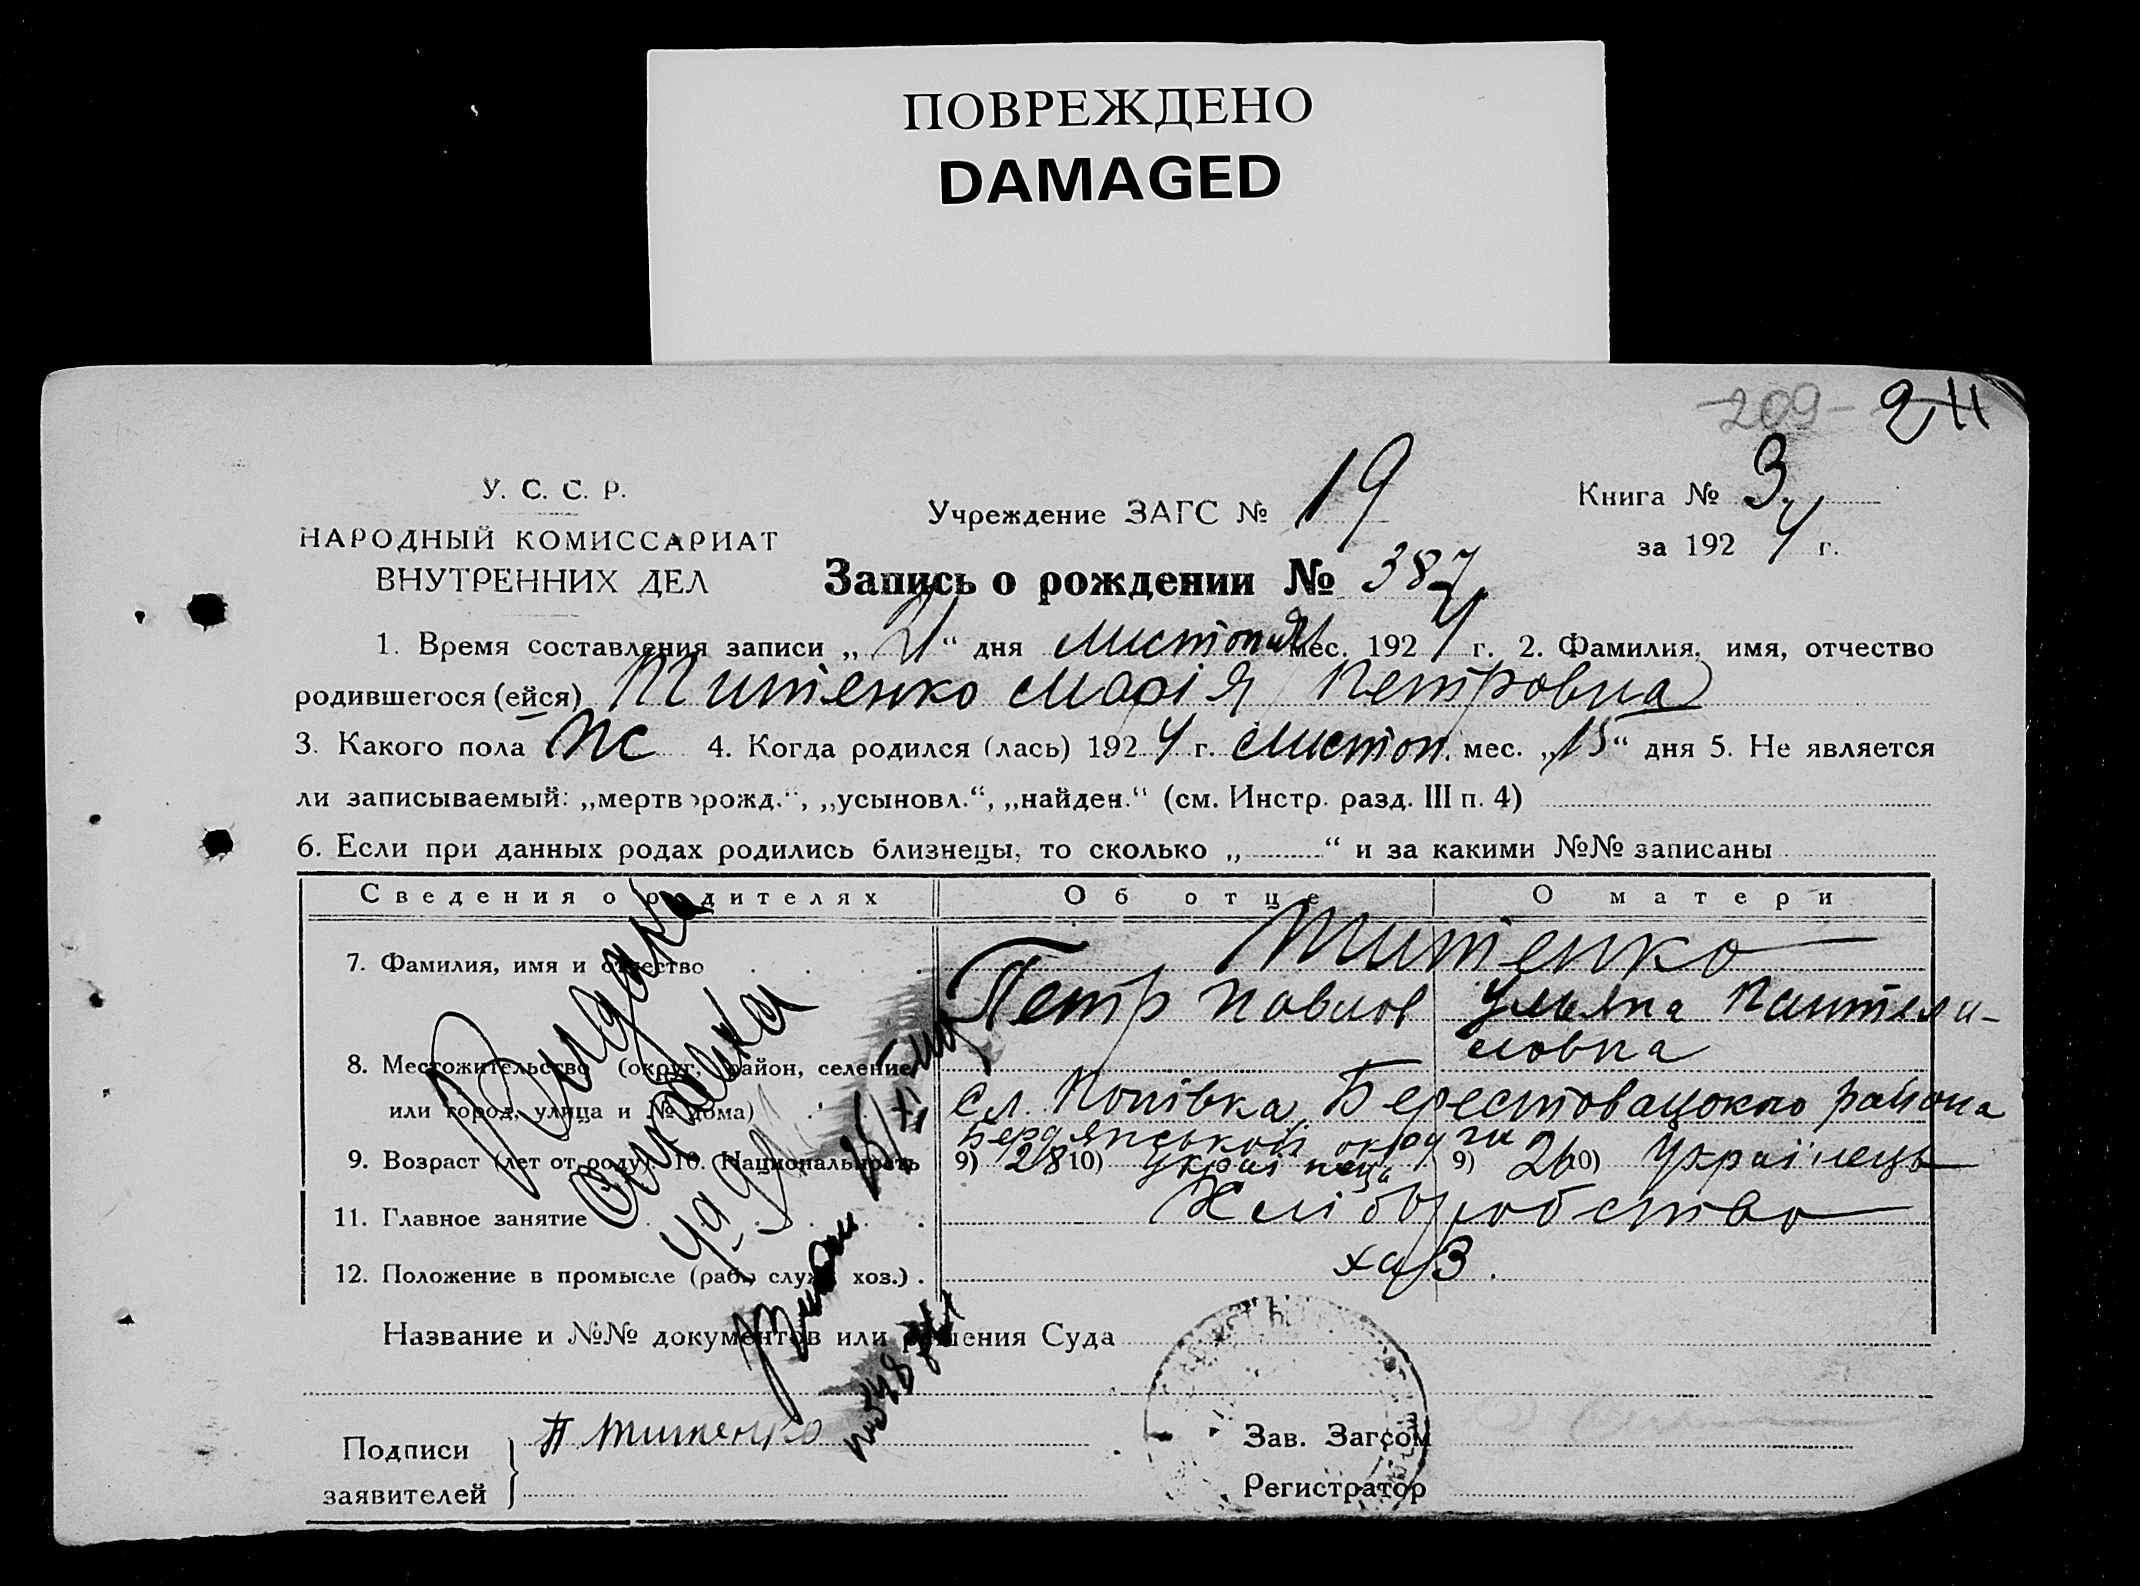 ПОВРЕЖДЕНО
DAMAGED
209 211
У. С. С. Р.
НАРОДНЫЙ КОМИССАРИАТ
ВНУТРЕННИХ ДЕЛ
Учреждение ЗАГС № 19
Книга № 3
за 1924 г.
Запись о рождении № 387
1. Время составления записи „21“ дня листопад мес. 1924 г. 2. Фамилия, имя, отчество
родившегося (ейся) Титенко Марія Петровна
3. Какого пола жс 4. Когда родился (лась) 1924 г. Листоп. мес. „15“ дня 5. Не является
ли записываемый: „мертворожд.“, „усыновл.“, „найден.“ (см. Инстр. разд. III п. 4)
6. Если при данных родах родились близнецы, то сколько „ “ и за какими №№ записаны
Сведения о родителях Об отце О матери
7. Фамилия, имя и отчество Титенко
Петр Павлов Ульяна Пантелеи-
мовна
8. Местожительство (округ, район, селение
или город, улица и № дома) сл. Попівка, Берестовацокго района
Бердянськой округи
9. Возраст (лет от роду). 10. Национальность 9) 28 10) Українець 9) 26 10) Українець
11. Главное занятие Хліборобство
12. Положение в промысле (раб., служ., хоз.) хаз.
Видана
справка
Название и №№ документов или решения Суда
Подписи
заявителей
П Титенко
Зав. Загсом
Регистратор